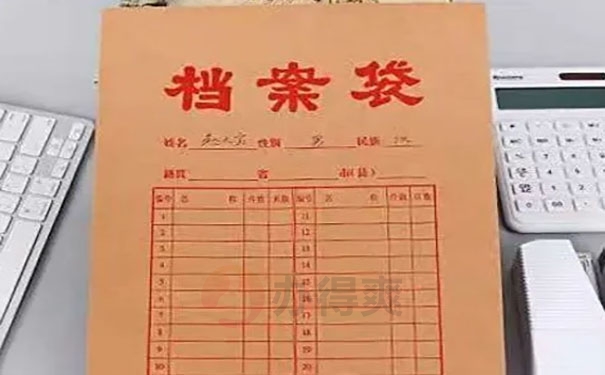 档案袋
姓名 性别 男 民族 汉
籍贯 省 市(区县)
编号 名 称 件数 页数 编号 名 称 件数 页数
1 11
2 12
3 13
4 14
5 15
6 16
7 17
8 18
9 19
10 20
办得爽